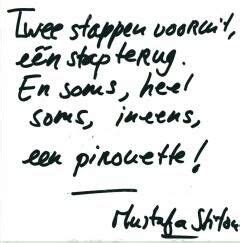 Twee stappen vooruit,
één stap terug.
En soms, heel
soms, ineens,
een pirouette!
Mustafa Stitou